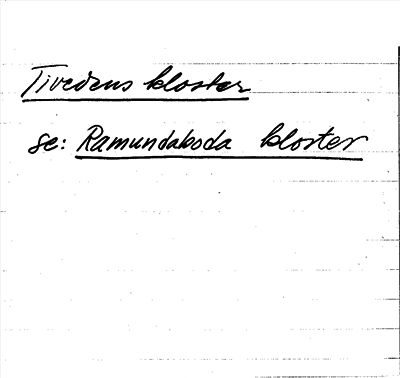 Tivedens kloster
se: Ramundaboda kloster